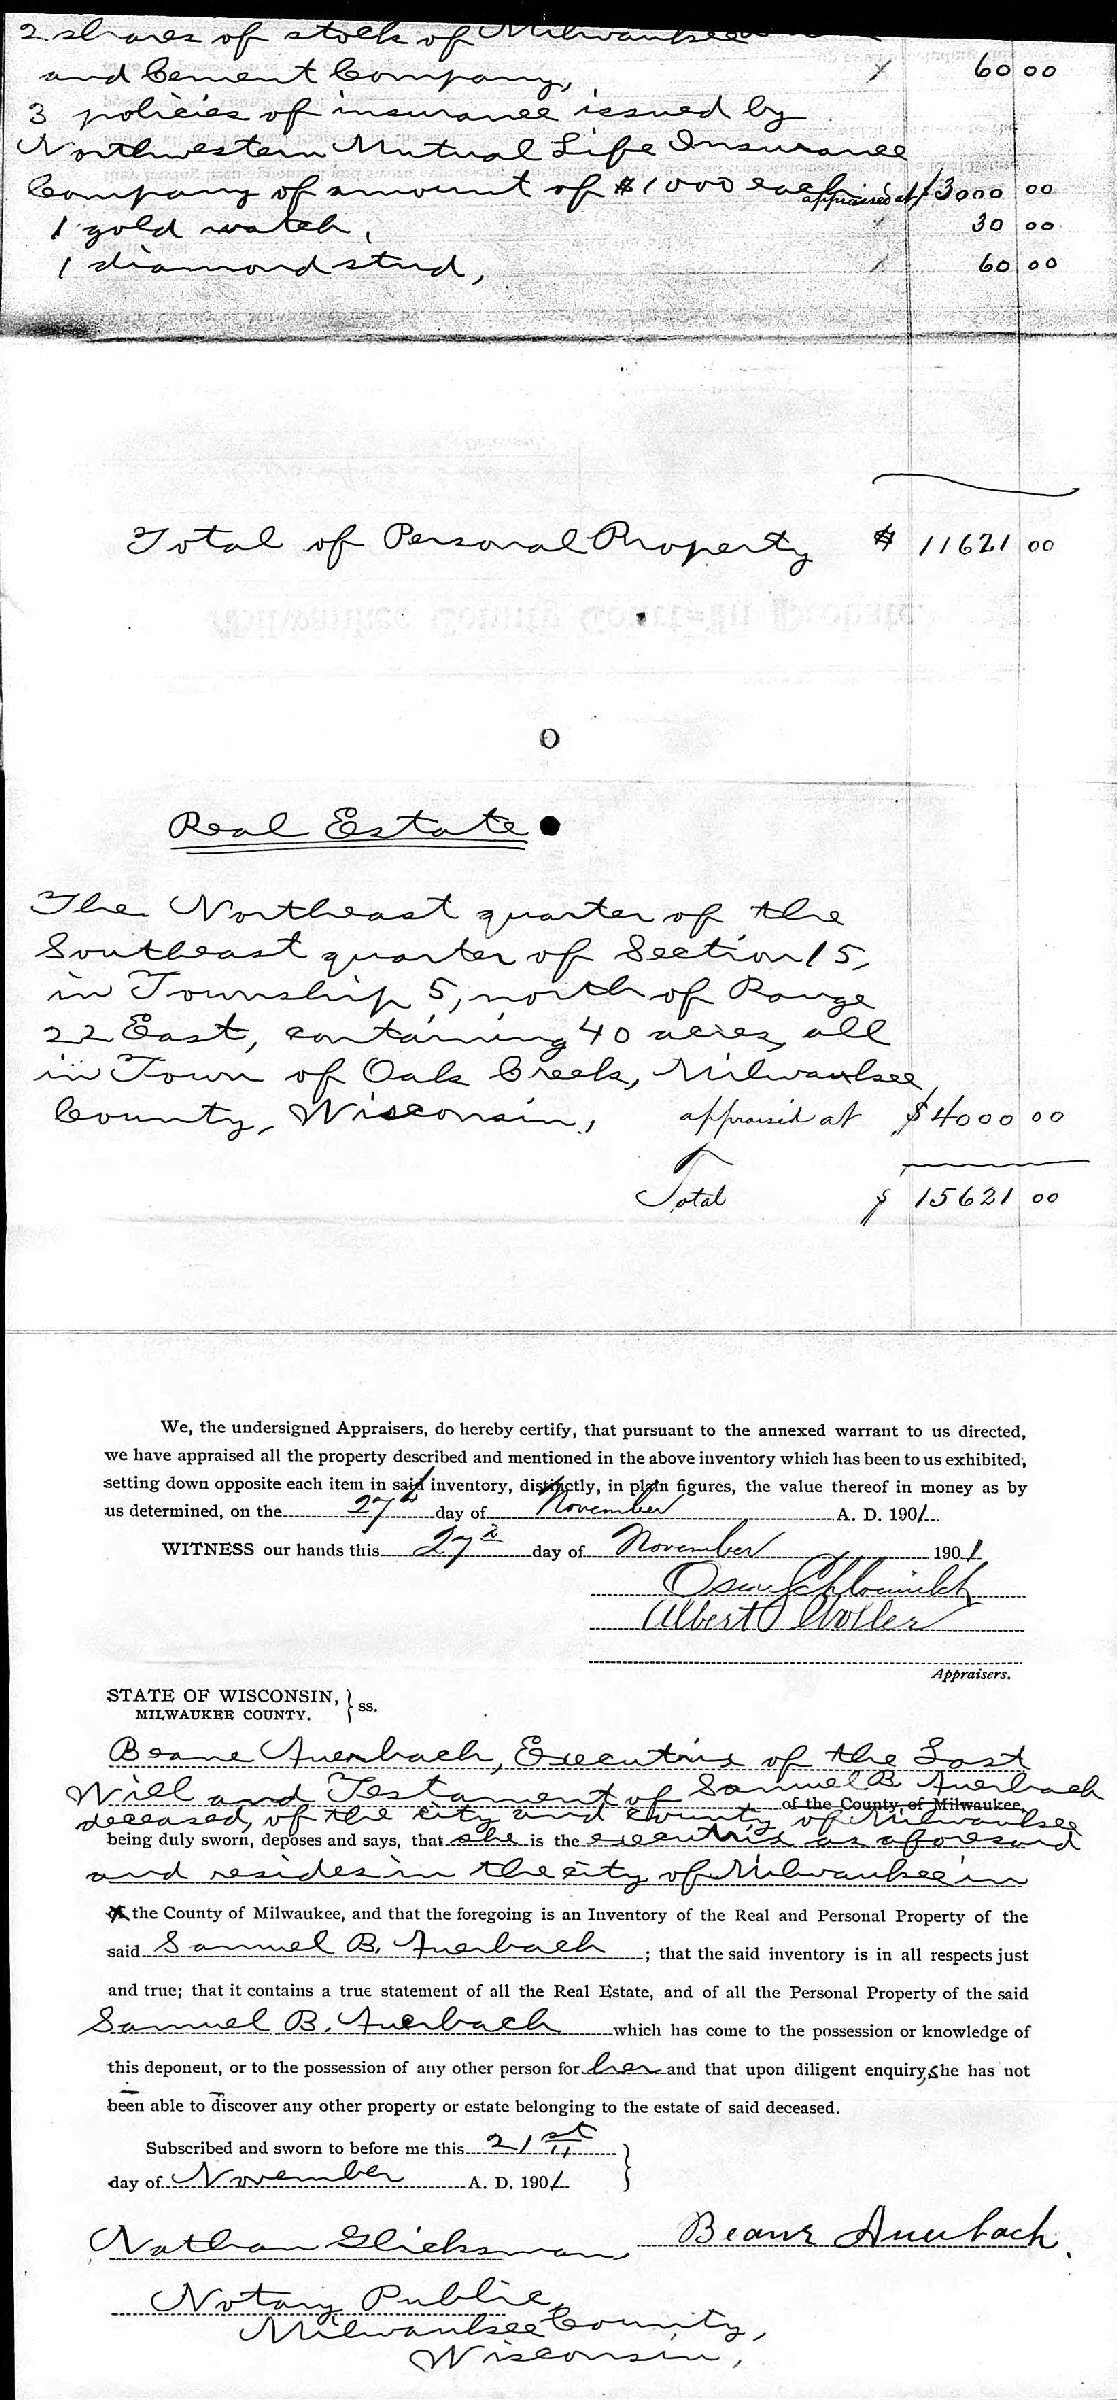 2 shares of stock of Milwaukee
and Cement Company, 60 00
3 policies of insurance issued by
Northwestern Mutual Life Insurance
Company of amount of $1000 each appraised at 3000 00
1 gold watch, 30 00
1 diamond stud, 60 00
Total of Personal Property $ 11621 00
Real Estate
The Northeast quarter of the
Southeast quarter of Section 15,
in Township 5, north of Range
22 East, containing 40 acres, all
in Town of Oak Creek, Milwaukee
County, Wisconsin, appraised at $4000 00
Total $ 15621 00
We, the undersigned Appraisers, do hereby certify, that pursuant to the annexed warrant to us directed,
we have appraised all the property described and mentioned in the above inventory which has been to us exhibited,
setting down opposite each item in said inventory, distinctly, in plain figures, the value thereof in money as by
us determined, on the 27th day of November A. D. 1901.
WITNESS our hands this 27th day of November 1901
Albert
Appraisers.
STATE OF WISCONSIN, } ss.
MILWAUKEE COUNTY.
Beane Auerbach, Executrix of the Last
Will and Testament of Samuel B. Auerbach
of the County of Milwaukee,
deceased, of the city and county of Milwaukee
being duly sworn, deposes and says, that she is the executrix as aforesaid
and resides in the city of Milwaukee in
the County of Milwaukee, and that the foregoing is an Inventory of the Real and Personal Property of the
said Samuel B. Auerbach ; that the said inventory is in all respects just
and true; that it contains a true statement of all the Real Estate, and of all the Personal Property of the said
Samuel B. Auerbach which has come to the possession or knowledge of
this deponent, or to the possession of any other person for her and that upon diligent enquiry, she has not
been able to discover any other property or estate belonging to the estate of said deceased.
Subscribed and sworn to before me this 21st
day of November A. D. 1901 }
Beane Auerbach.
Nathan Glicksman
Notary Public,
Milwaukee County,
Wisconsin,